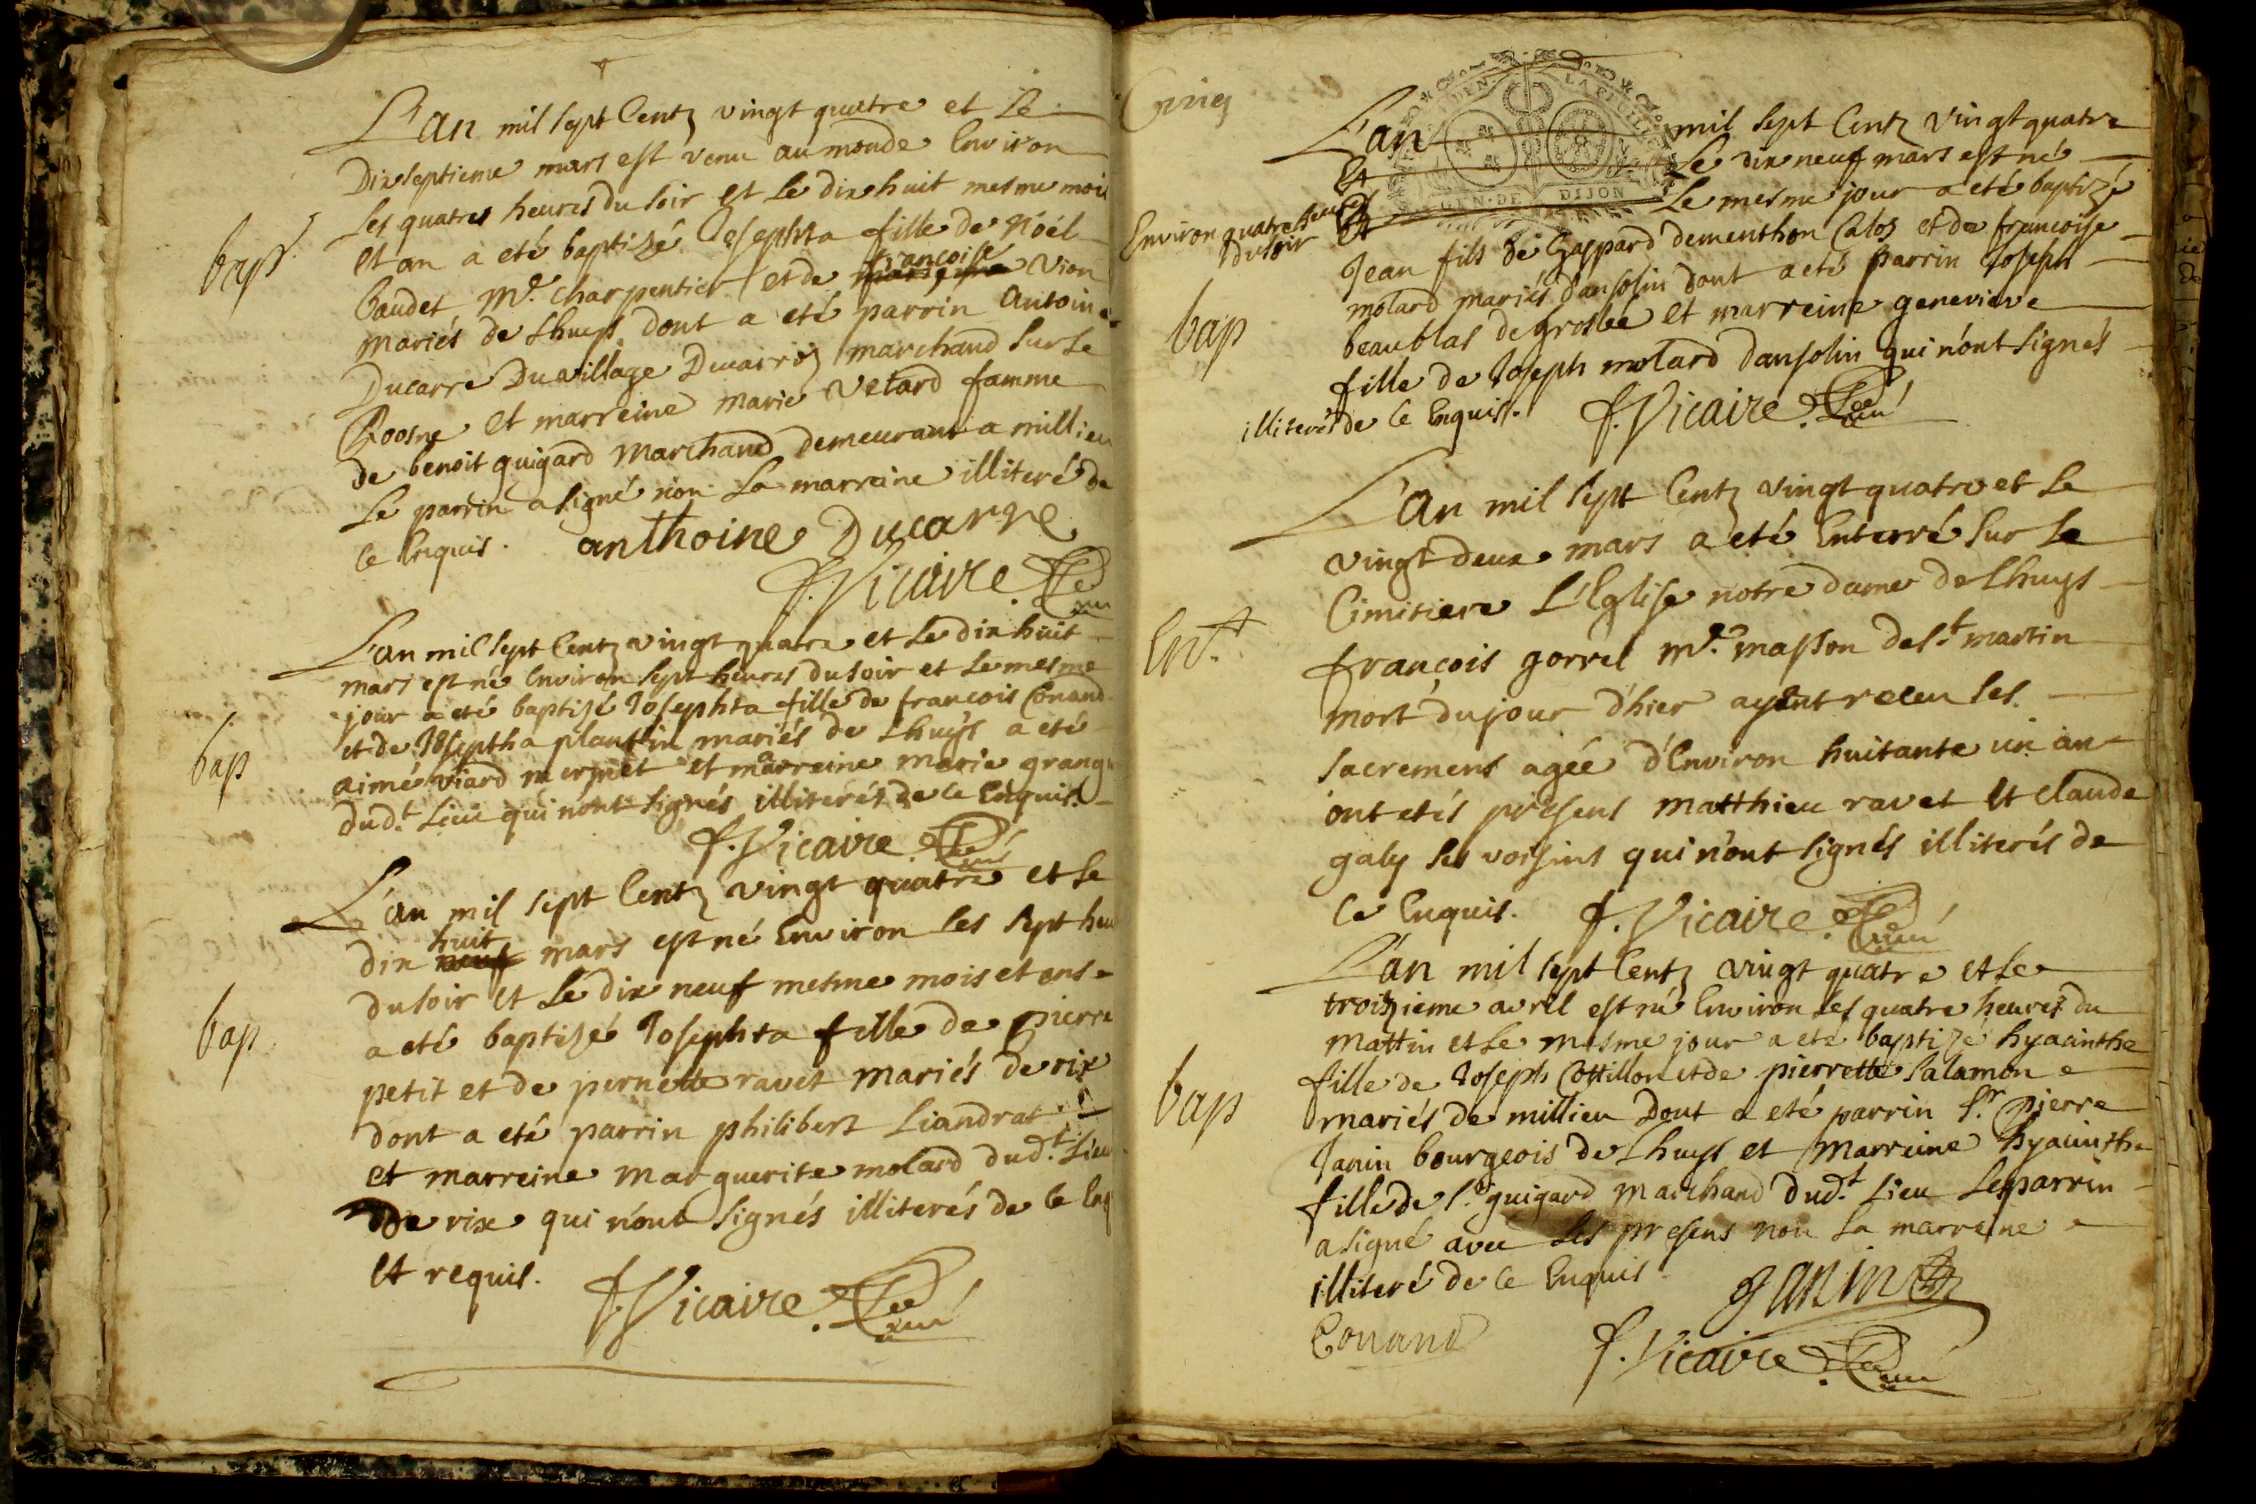 L'an mil sept Centz vingt quatre et le
Dixseptieme mars est venu au monde Environ
les quatres heures du soir et le dixhuit mesme mois
bap.
et an a eté baptizé Josephta fille de Noël
françoise
Caudet Me. Charpentier et de Vion
mariés de Lhuys dont a eté parrin Antoine
Ducarre Du village Ducarroz marchand sur le
Roosne et marreine marie Vetard famme
de benoit guigard marchand demeurant a millieu
Le parrin a signé non la marreine illiteré de
ce Enquis. anthoine Ducarre
f. Vicaire
L'an mil sept Centz vingt quatre et le dix huit
mars est né Environ sept heures du soir et le mesme
jour a eté baptizé Josephta fille de françois Conand
et de Joseptha plantin mariés de Lhuys a eté
bap
aimé viard mermet et marreine marie grange
dud.t Lieu qui n'ont signés illiterés de ce Enquis.
f. Vicaire
L'an mil sept Centz vingt quatre et le
huit
dix neuf mars est né Environ les sept heu
du soir et le dix neuf mesme mois et ans
bap
a eté baptizé Josephta fille de pierre
petit et de pernette ravet mariés de rix
dont a eté parrin philibert Liandrat
et marreine marguerite molard dud.t Lieu
De rix qui n'ont signés illiterés de ce Enq
et requis.
f. Vicaire
Cinq
GEN. DE DIJON
L'an mil sept Centz vingt quatre
et le dix neuf mars est né
Environ quatre heures
du soir
et le mesme jour a eté baptizé
Jean fils de Gaspard dementhon Calos et de françoise
molard mariés d'ansolin dont a eté parrin Joseph
bap
beaublas de groslee et marreine genevieve
fille de Joseph molard dansolin qui n'ont signés
illiterés de ce Enquis. f. Vicaire
L'an mil sept Centz vingt quatre et le
vingt deux mars a eté Enterré sur le
Cimitiere L'Eglise notre dame de Lhuys
Ent.
françois gorrel Me. masson de St. martin
mort du jour d'hier ayent receu les
sacremens agée d'Environ huitante un an
ont etés présens matthieu ravet et claude
galy ses voisins qui n'ont signés illiterés de
ce Enquis. f. Vicaire
L'an mil sept Centz vingt quatre et le
troizieme avril est né Environ les quatre heures du
mattin et le mesme jour a eté baptizé hyacinthe
fille de Joseph Cottillon et de pierrette Salamon
bap
mariés de millieu dont a eté parrin Sr. pierre
Janin bourgeois de Lhuys et marreine hyacinthe
fille de Sr. guigard marchand dud.t Lieu Le parrin
a signé avec les presens non la marreine
illiteré de ce Enquis.
Janin
Conand
f. Vicaire